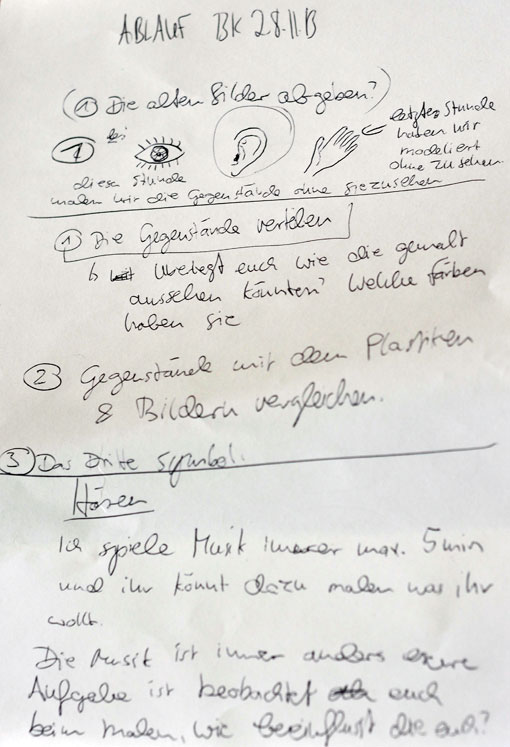 ABLAUF BK 28.11.B
(① Die alten Bilder abgeben?)
① bei
letzte Stunde
haben wir
modelliert
ohne zu sehen
diese Stunde
malen wir die Gegenstände ohne sie zu sehen
① Die Gegenstände verteilen
↳ Überlegt euch wie die gemalt
aussehen könnten? Welche Farben
haben sie
② Gegenstände mit dem Plastiken
& Bildern vergleichen.
③ Das Dritte Symbol.
Hören
Ich spiele Musik immer max. 5 min
und ihr könnt dazu malen was ihr
wollt.
Die Musik ist immer anders eure
Aufgabe ist beobachtet euch
beim malen, wie beeinflusst die euch?